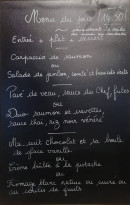 Menu du jour 14,50
Entrée + plat + dessert
Carpaccio de saumon
Salade de gésiers, comté et
Pavé de veau, sauce du Chef, frites
ou
Duo saumon et crevettes,
sauce thaï, riz noir vénéré
Mi-cuit chocolat et sa boule
de glace vanille
ou
Crème brûlée à la pistache
ou
Fromage blanc nature ou sucre ou
ou coulis de fruits